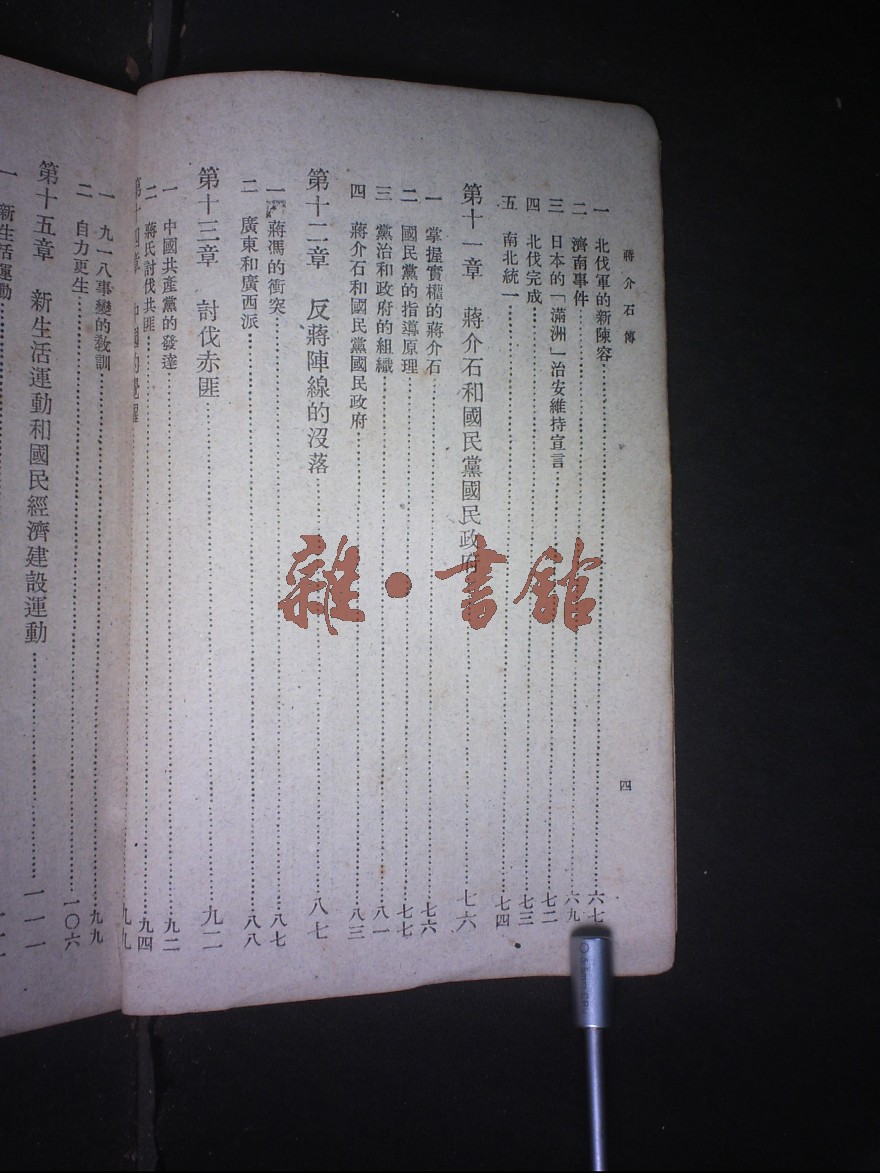 蔣介石傳
四
一 北伐軍的新陳容……六七
二 濟南事件……六九
三 日本的「滿洲」治安維持宣言……七二
四 北伐完成……七三
五 南北統一……七四
第十一章 蔣介石和國民黨國民政府……七六
一 掌握實權的蔣介石……七六
二 國民黨的指導原理……七七
三 黨治和政府的組織……八一
四 蔣介石和國民黨國民政府……八三
第十二章 反蔣陣線的沒落……八七
一 蔣馮的衝突……八七
二 廣東和廣西派……八八
第十三章 討伐赤匪……九二
一 中國共產黨的發達……九二
二 蔣氏討伐共匪……九四
第十四章 中國的覺醒……九九
一 九一八事變的教訓……九九
二 自力更生……一〇六
第十五章 新生活運動和國民經濟建設運動……一一一
一 新生活運動
雜·書館